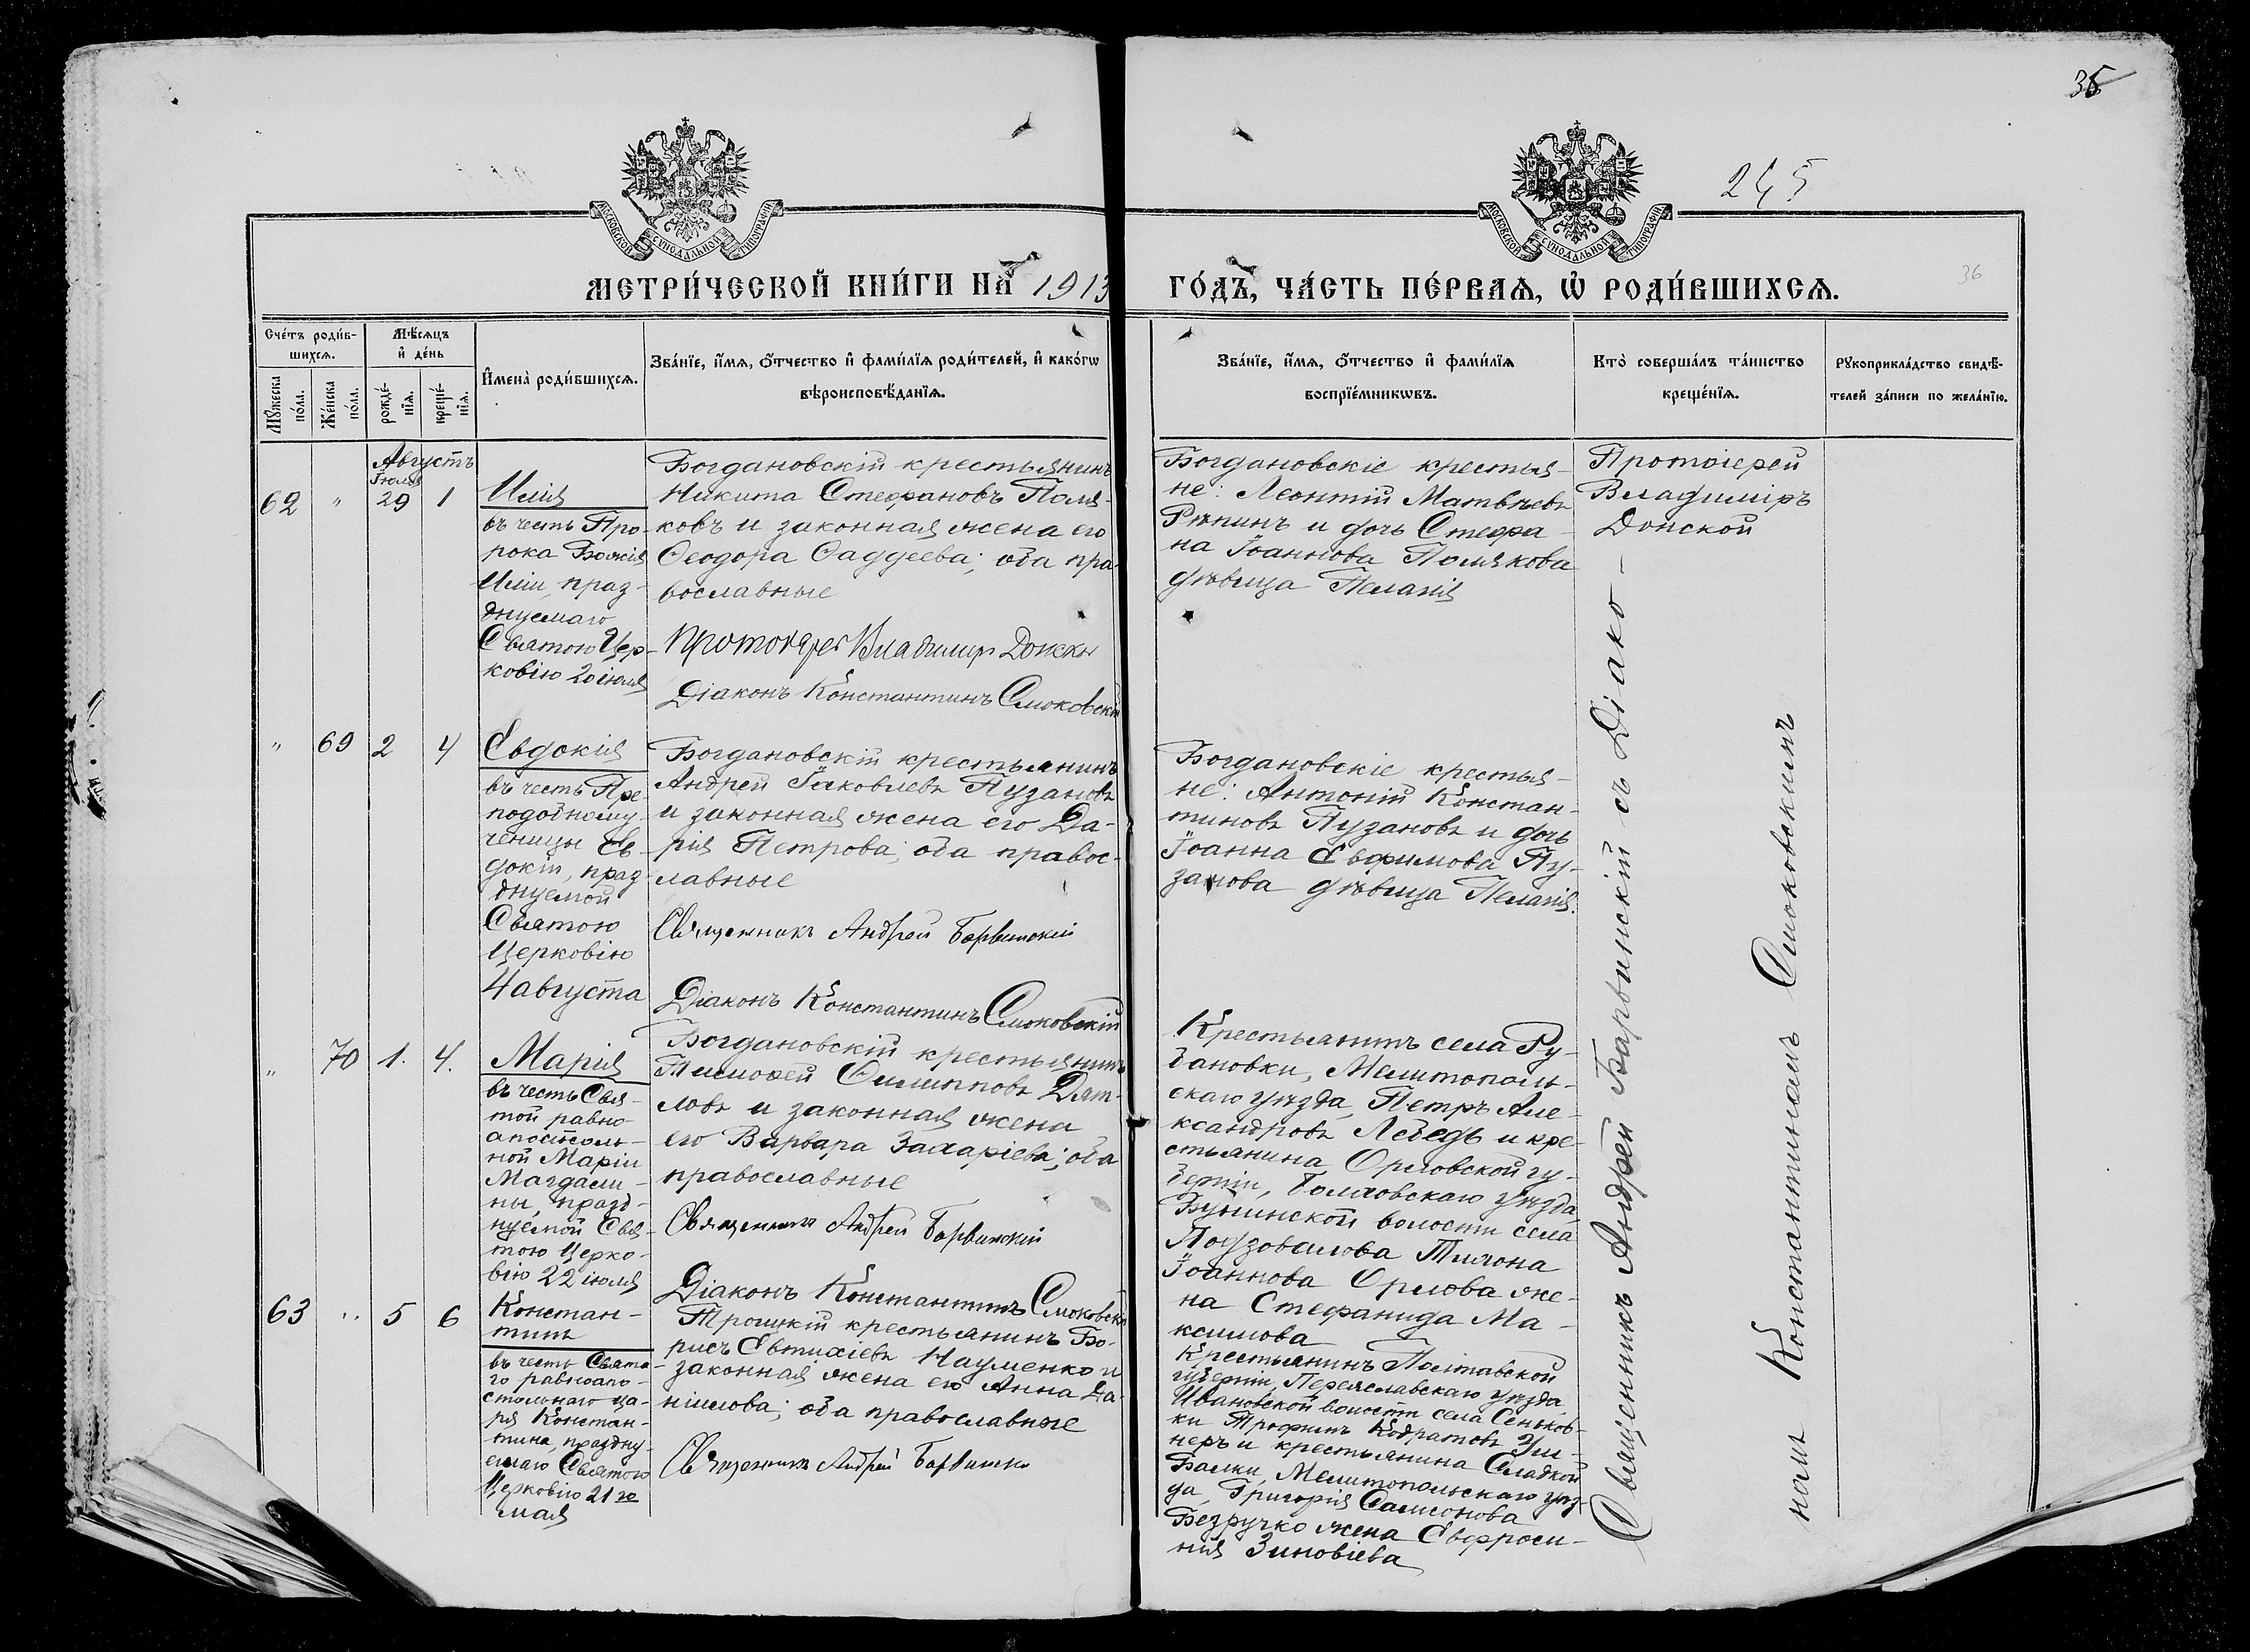 35
245
36
МОСКОВСКОЙ СУНОДАЛЬНОЙ ТИПОГРАФІИ
МОСКОВСКОЙ СУНОДАЛЬНОЙ ТИПОГРАФІИ
МЕТРИ́ЧЕСКОЙ КНИ́ГИ НА 1913 ГО́ДЪ, ЧА́СТЬ ПЕ́РВАЯ, Ѡ РОДИ́ВШИХСЯ.
Сче́тъ роди́в-
шихся.
Мꙋжеска по́ла.
Же́нска по́ла.
Мѣ́сяцъ
и҆ де́нь
рожде́-
нїѧ.
креще́-
нїѧ.
И҆мена̀ роди́вшихся.
Зва́нїе, и҆́мѧ, ѻ҆́тчество и҆ фами́лїѧ роди́телей, и҆ како́гѡ
вѣроисповѣ́данїѧ.
Зва́нїе, и҆́мѧ, ѻ҆́тчество и҆ фами́лїѧ
воспрїе́мникѡвъ.
Кто̀ соверша́лъ та́инство
креще́нїѧ.
Рꙋкоприкла́дство свидѣ́-
телей за́писи по жела́нїю.
Августъ
Іюля
62 " 29 1
Илія
въ честь Про-
рока Божія
Иліи, праз-
днуемаго
Святою Цер-
ковію 20 іюля
Богдановскій крестьянинъ
Никита Стефановъ Поля-
ковъ и законная жена его
Ѳеодора Ѳаддеева; оба пра-
вославные
Протоіерей Владимиръ Донской
Діаконъ Константинъ Смоковскій
Богдановскіе крестья-
не: Леонтій Матвѣевъ
Рѣпинъ и дочь Стефа-
на Іоаннова Полякова
дѣвица Пелагія
Протоіерей
Владиміръ
Донской
" 69 2 4
Евдокія
въ честь Пре-
подобному-
ченицы Ев-
докіи, праз-
днуемой
Святою
Церковію
4 августа
Богдановскій крестьянинъ
Андрей Іаковлевъ Пузановъ
и законная жена его Да-
рія Петрова; оба правос-
лавные
Священникъ Андрей Барвинскій
Діаконъ Константинъ Смоковскій
Богдановскіе крестья-
не: Антоній Констан-
тиновъ Пузановъ и дочь
Іоанна Евфимова Пу-
занова дѣвица Пелагія.
" 70 1. 4.
Марія
въ честь Свя-
той равно-
апостоль-
ной Маріи
Магдали-
ны, празд-
нуемой Свя-
тою Церко-
вію 22 іюля
Богдановскій крестьянинъ
Тимоѳей Филипповъ Дят-
ловъ и законная жена
его Варвара Захаріева; оба
православные
Священникъ Андрей Барвинскій
Діаконъ Константинъ Смоковскій
Крестьянинъ села Ру-
бановки, Мелитополь-
скаго уѣзда, Петръ Але-
ксандровъ Лебедь и кре-
стьянина Орловской гу-
берніи, Болховскаго уѣзда,
Бунинской волости села
Подзовалова Тихона
Іоаннова Орлова же-
на Стефанида Ма-
ксимова
63 " 5 6
Констан-
тинъ
въ честь Свята-
го равноапо-
стольнаго ца-
ря Констан-
тина, праздну-
емаго Святою
Церковію 21 го
мая
Троицкій крестьянинъ Бо-
рисъ Евтихіевъ Науменко и
законная жена его Анна Да-
ніилова; оба православные
Священникъ Андрей Барвински
Крестьянинъ Полтавской
губерніи, Переяславскаго уѣзда,
Ивановской волости села Сеньков-
ки Трофимъ Кодратовъ
и крестьянина Сладкой
Балки, Мелитопольскаго уѣз-
да, Григорія Самсонова
Безручко жена Евфроси-
нія Зиновіева
Священникъ Андрей Барвинскій съ Діако-
номъ Константиномъ Смоковскимъ